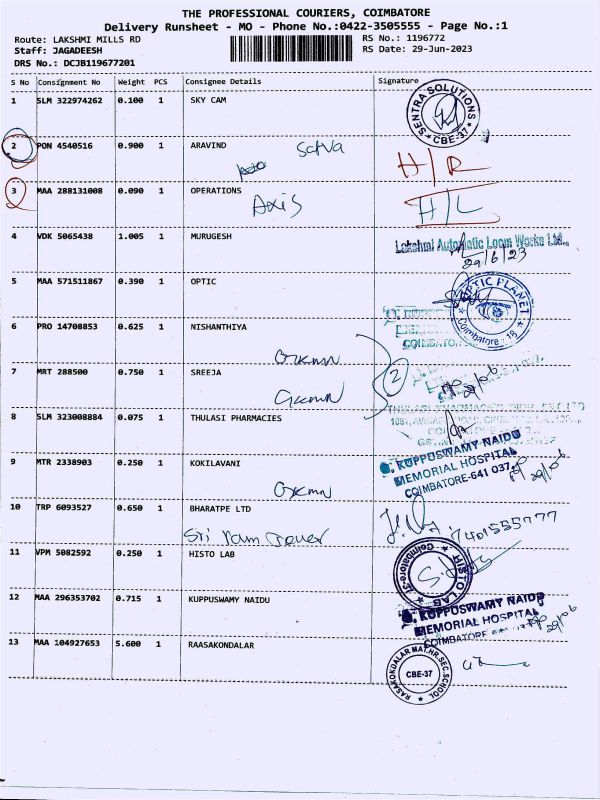 THE PROFESSIONAL COURIERS, COIMBATORE
Delivery Runsheet - MO - Phone No.:0422-3505555 - Page No.:1
Route: LAKSHMI MILLS RD
RS No.: 1196772
Staff: JAGADEESH
RS Date: 29-Jun-2023
DRS No.: DCJB119677201
S No Consignment No Weight PCS Consignee Details Signature
1 SLM 322974262 0.100 1 SKY CAM
SENTRA SOLUTIONS
CBE-37
2 PON 4540516 0.900 1 ARAVIND
H/R
3 MAA 288131008 0.090 1 OPERATIONS
Axis
H/L
4 VDK 5065438 1.005 1 MURUGESH
Lakshmi Automatic Loom Works Ltd.,
29/6/23
5 MAA 571511867 0.390 1 OPTIC
OPTIC PLANET
Coimbatore - 18
6 PRO 14708853 0.625 1 NISHANTHIYA
GKMN
2
7 MRT 288500 0.750 1 SREEJA
GKMN
8 SLM 323008884 0.075 1 THULASI PHARMACIES
9 MTR 2338903 0.250 1 KOKILAVANI
GKMN
G. KUPPUSWAMY NAIDU
MEMORIAL HOSPITAL
COIMBATORE-641 037
29/06
10 TRP 6093527 0.650 1 BHARATPE LTD
Sri ram
7401555777
11 VPM 5082592 0.250 1 HISTO LAB
HISTO LAB
12 MAA 296353702 0.715 1 KUPPUSWAMY NAIDU
G. KUPPUSWAMY NAIDU
MEMORIAL HOSPITAL
COIMBATORE
29/06
13 MAA 104927653 5.600 1 RAASAKONDALAR
RASAKONDALAR MAT.HR.SEC.SCHOOL
CBE-37